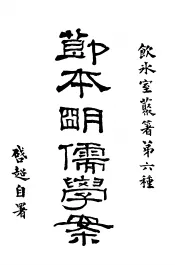 飲氷室叢箸第六種
節本明儒學案
啓超自署